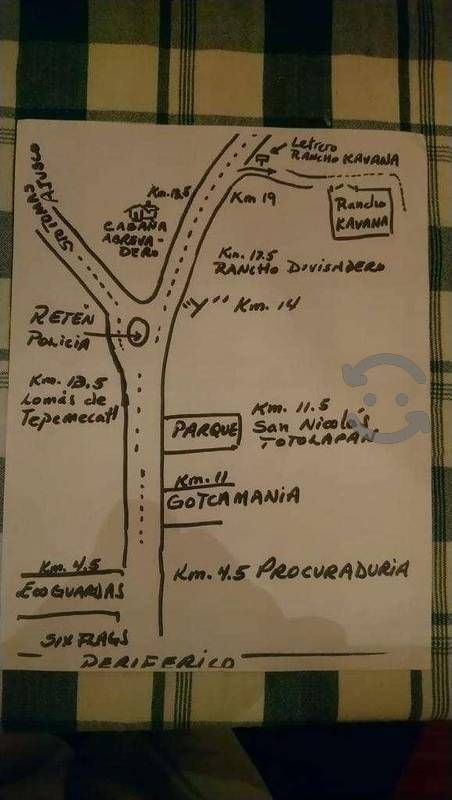 Letrero
RANCHO KAVANA
STO TOMAS AJUSCO
Km. 18.5
CABAÑA
ABREVA-
DERO
Km 19
Rancho
KAVANA
Km. 17.5
RANCHO DIVISADERO
"Y" Km. 14
RETÉN
Policia
Km. 13.5
Lomás de
Tepemecatl
PARQUE
Km. 11.5
San Nicolás
TOTOLAPAN
Km. 11
GOTCAMANIA
Km. 4.5
ECOGUARDAS
Km. 4.5 PROCURADURIA
SIX FLAGS
PERIFERICO